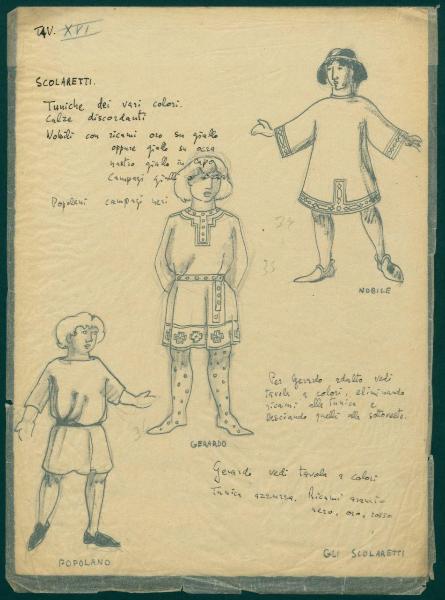 TAV. XVI
SCOLARETTI.
Tuniche dei vari colori.
Calze discordanti
Nobili con ricami oro su giallo
oppure giallo su ocra
nastro giallo in capo
Campagi
Popolani campagi neri
34
35
NOBILE
Per Gerardo adulto vedi
tavola a colori, eliminando
ricami alla tunica e
lasciando quelli alla sottoveste.
GERARDO
Gerardo vedi tavola a colori
Tunica azzurra. Ricami arancio
nero, oro, rosso
POPOLANO
GLI SCOLARETTI